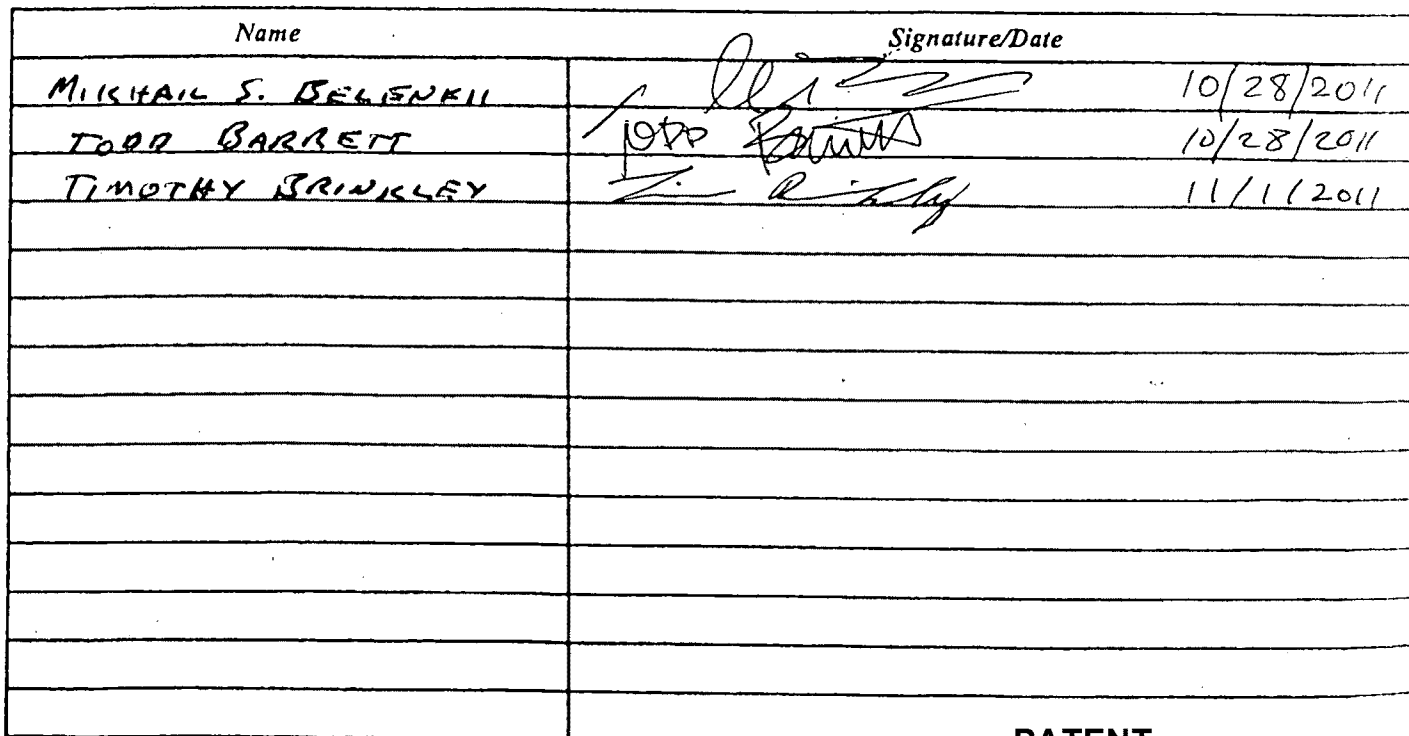 Name Signature/Date
MIKHAIL S. BELENKII 10/28/2011
TODD BARRETT TODD Barrett 10/28/2011
TIMOTHY BRINKLEY Tim Brinkley 11/1/2011
PATENT